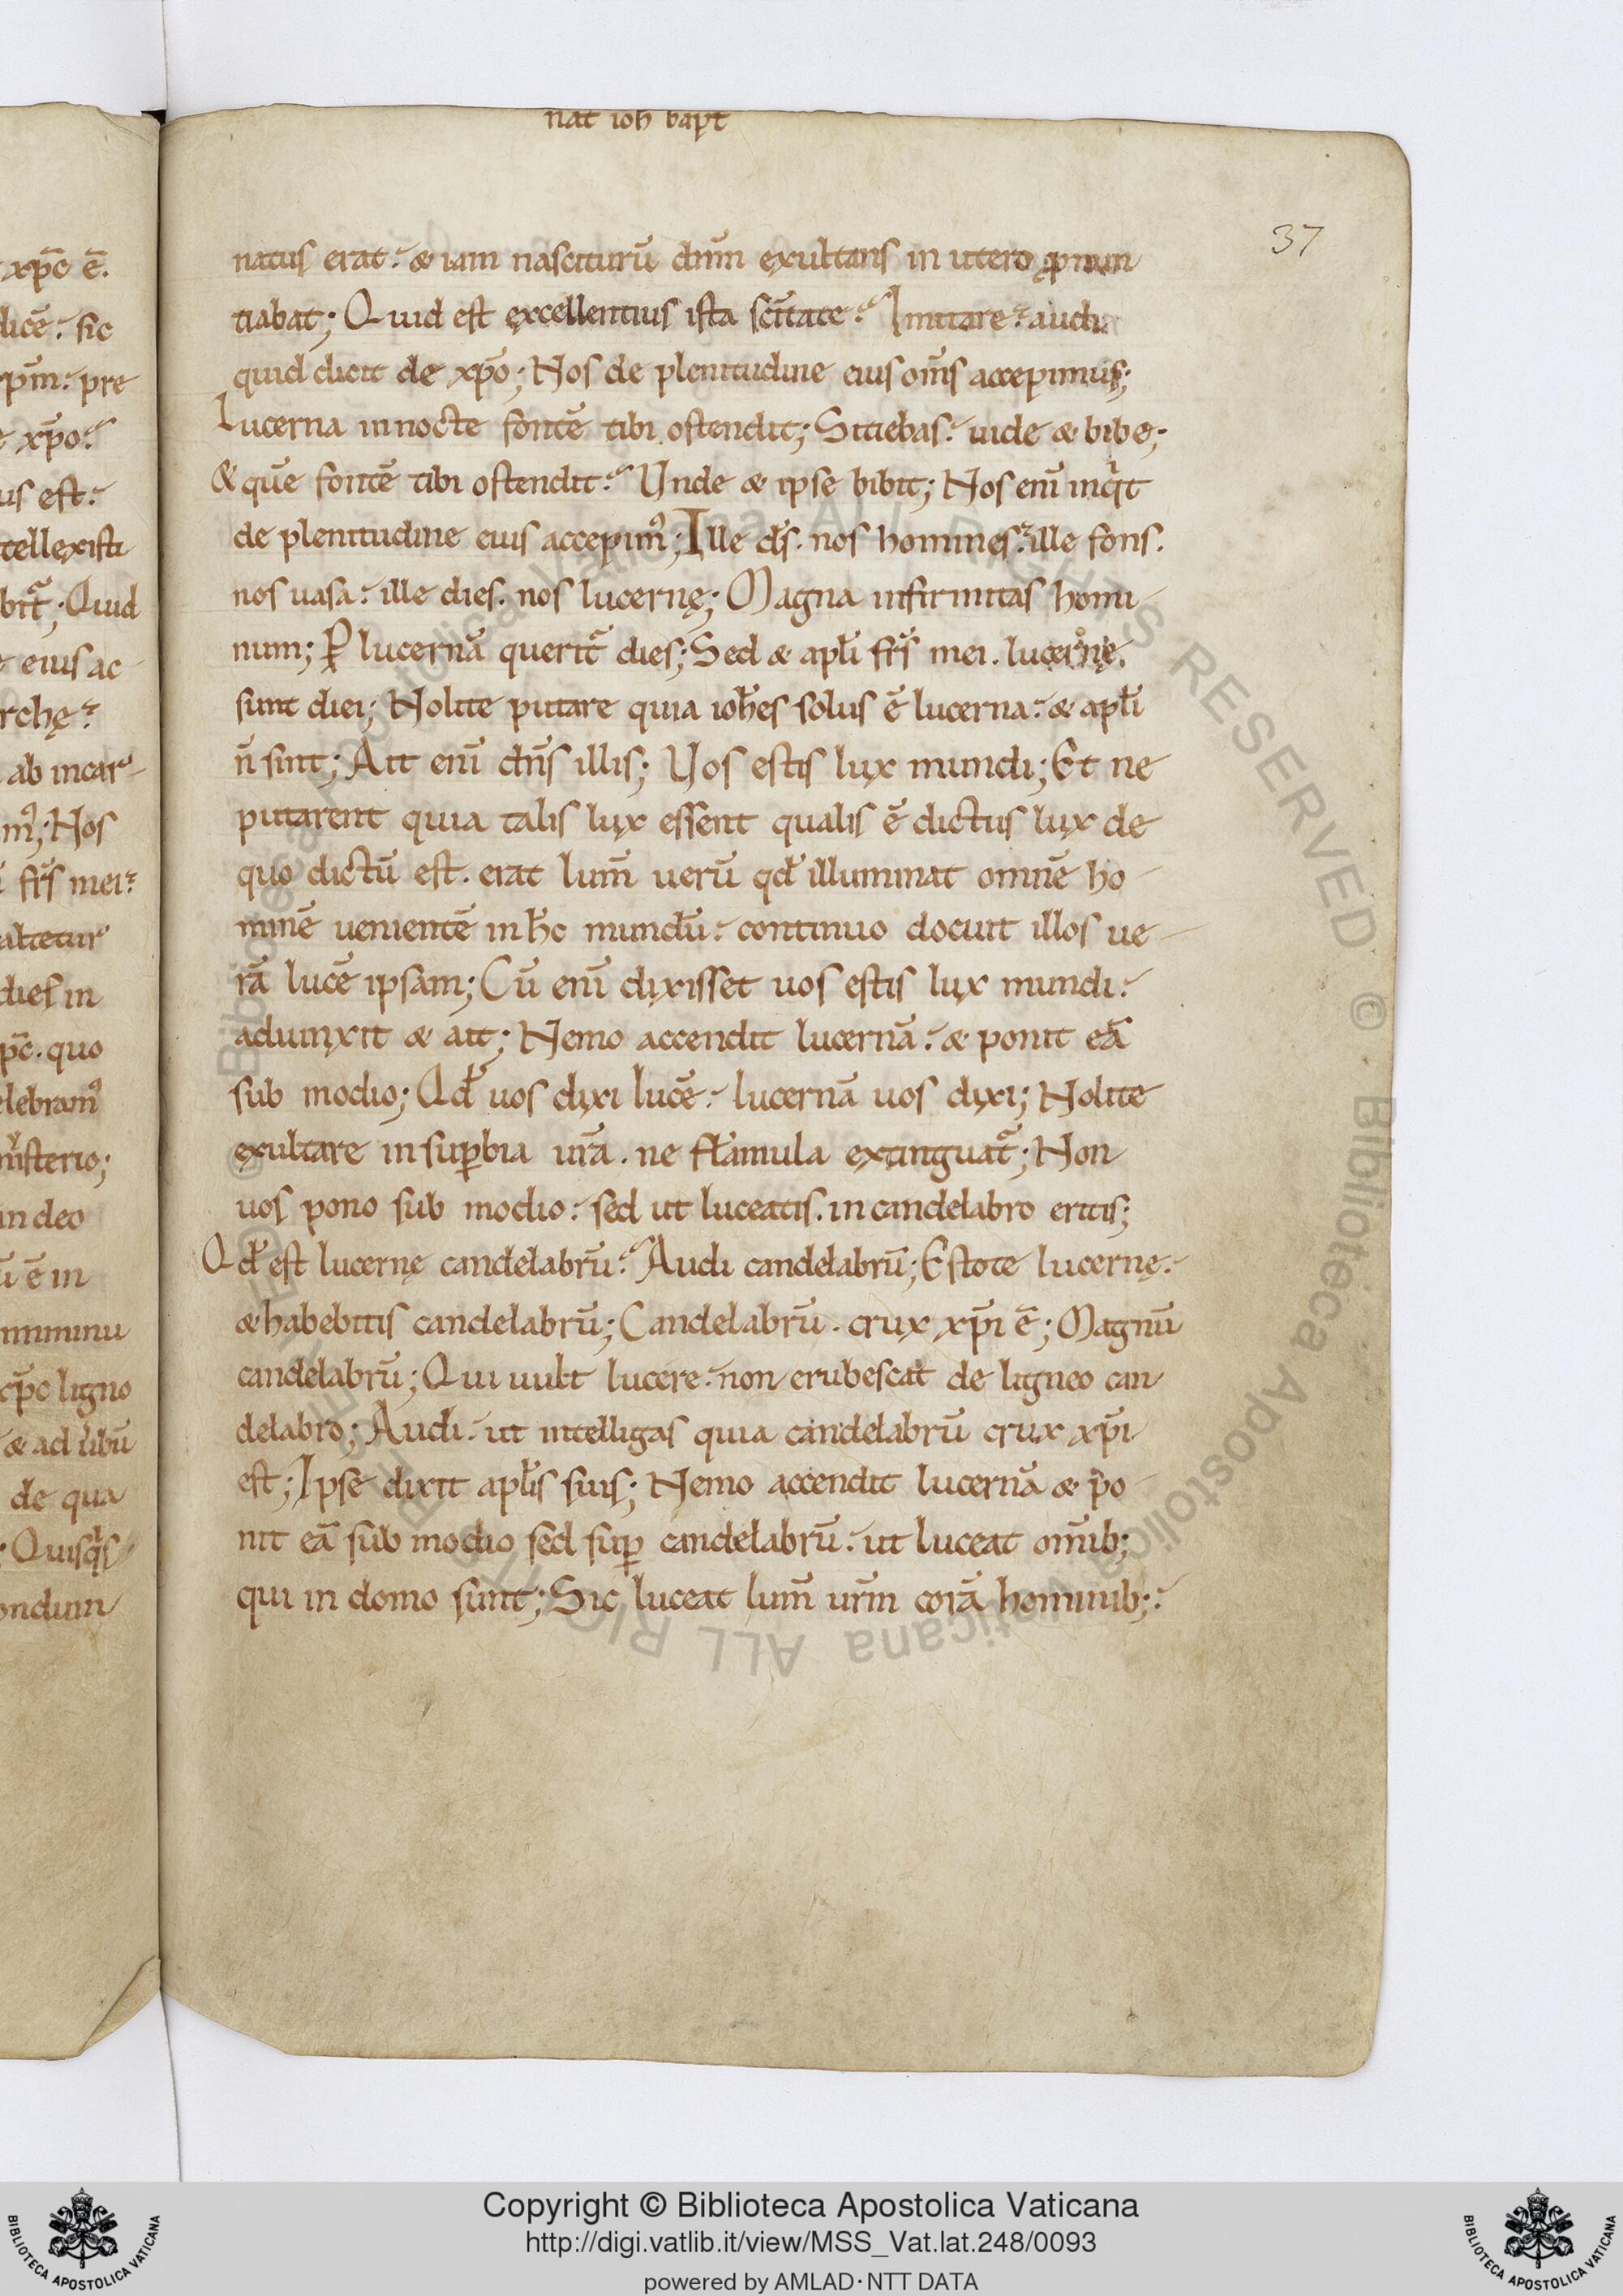 nat ioh bapt
37
natus erat. & iam nasciturū dn̄m exultans in utero pronun
tiabat; Quid est excellentius ista sc̄itate? Imitare. audi
quid dicit de xp̄o; Nos de plenitudine eius om̄s accepimus;
Lucerna in nocte fontē tibi ostendit; Sitiebas. uide & bibe;
& quē fontē tibi ostendit? Unde & ipse bibit; Nos enī inqͥt
de plenitudine eius accepimꝰ; Ille dſ̄. nos homines. ille fons.
nos uasa. ille dies. nos lucernę; Magna infirmitas homi
num; P̱ lucernā querit᷑ dies; Sed & apłi frſ̄ mei. lucernę
sunt diei; Nolite putare quia ioħes solus ē lucerna. & apłi
n̄ sint; Ait enī dn̄s illis; Vos estis lux mundi; Et ne
putarent quia talis lux essent qualis ē dictus lux de
quo dictū est. erat lum̄ uerū qđ illuminat omnē ho
minē uenientē in ħc mundū. continuo docuit illos ue
rā lucē ipsam; Cū enī dixisset uos estis lux mundi.
adiunxit & ait; Nemo accendit lucernā. & ponit eā
sub modio; Qđ uos dixi lucē. lucernā uos dixi; Nolite
exultare in suꝑbia ur̄a. ne flāmula extinguat᷑; Non
uos pono sub modio. sed ut luceatis. in candelabro eritis;
Qđ est lucernę candelabrū? Audi candelabrū; Estote lucernę.
& habebitis candelabrū; Candelabrū. crux xp̄i ē; Magnū
candelabrū; Qui uult lucere. non erubescat de ligneo can
delabro; Audi. ut intelligas quia candelabrū crux xp̄i
est; Ipse dixit apłis suis; Nemo accendit lucernā & po
nit eā sub modio sed suꝑ candelabrū. ut luceat om̄ib;
qui in domo sunt; Sic luceat lum̄ ur̄m corā hominib;.
Copyright © Biblioteca Apostolica Vaticana
http://digi.vatlib.it/view/MSS_Vat.lat.248/0093
powered by AMLAD·NTT DATA
BIBLIOTECA APOSTOLICA VATICANA
BIBLIOTECA APOSTOLICA VATICANA